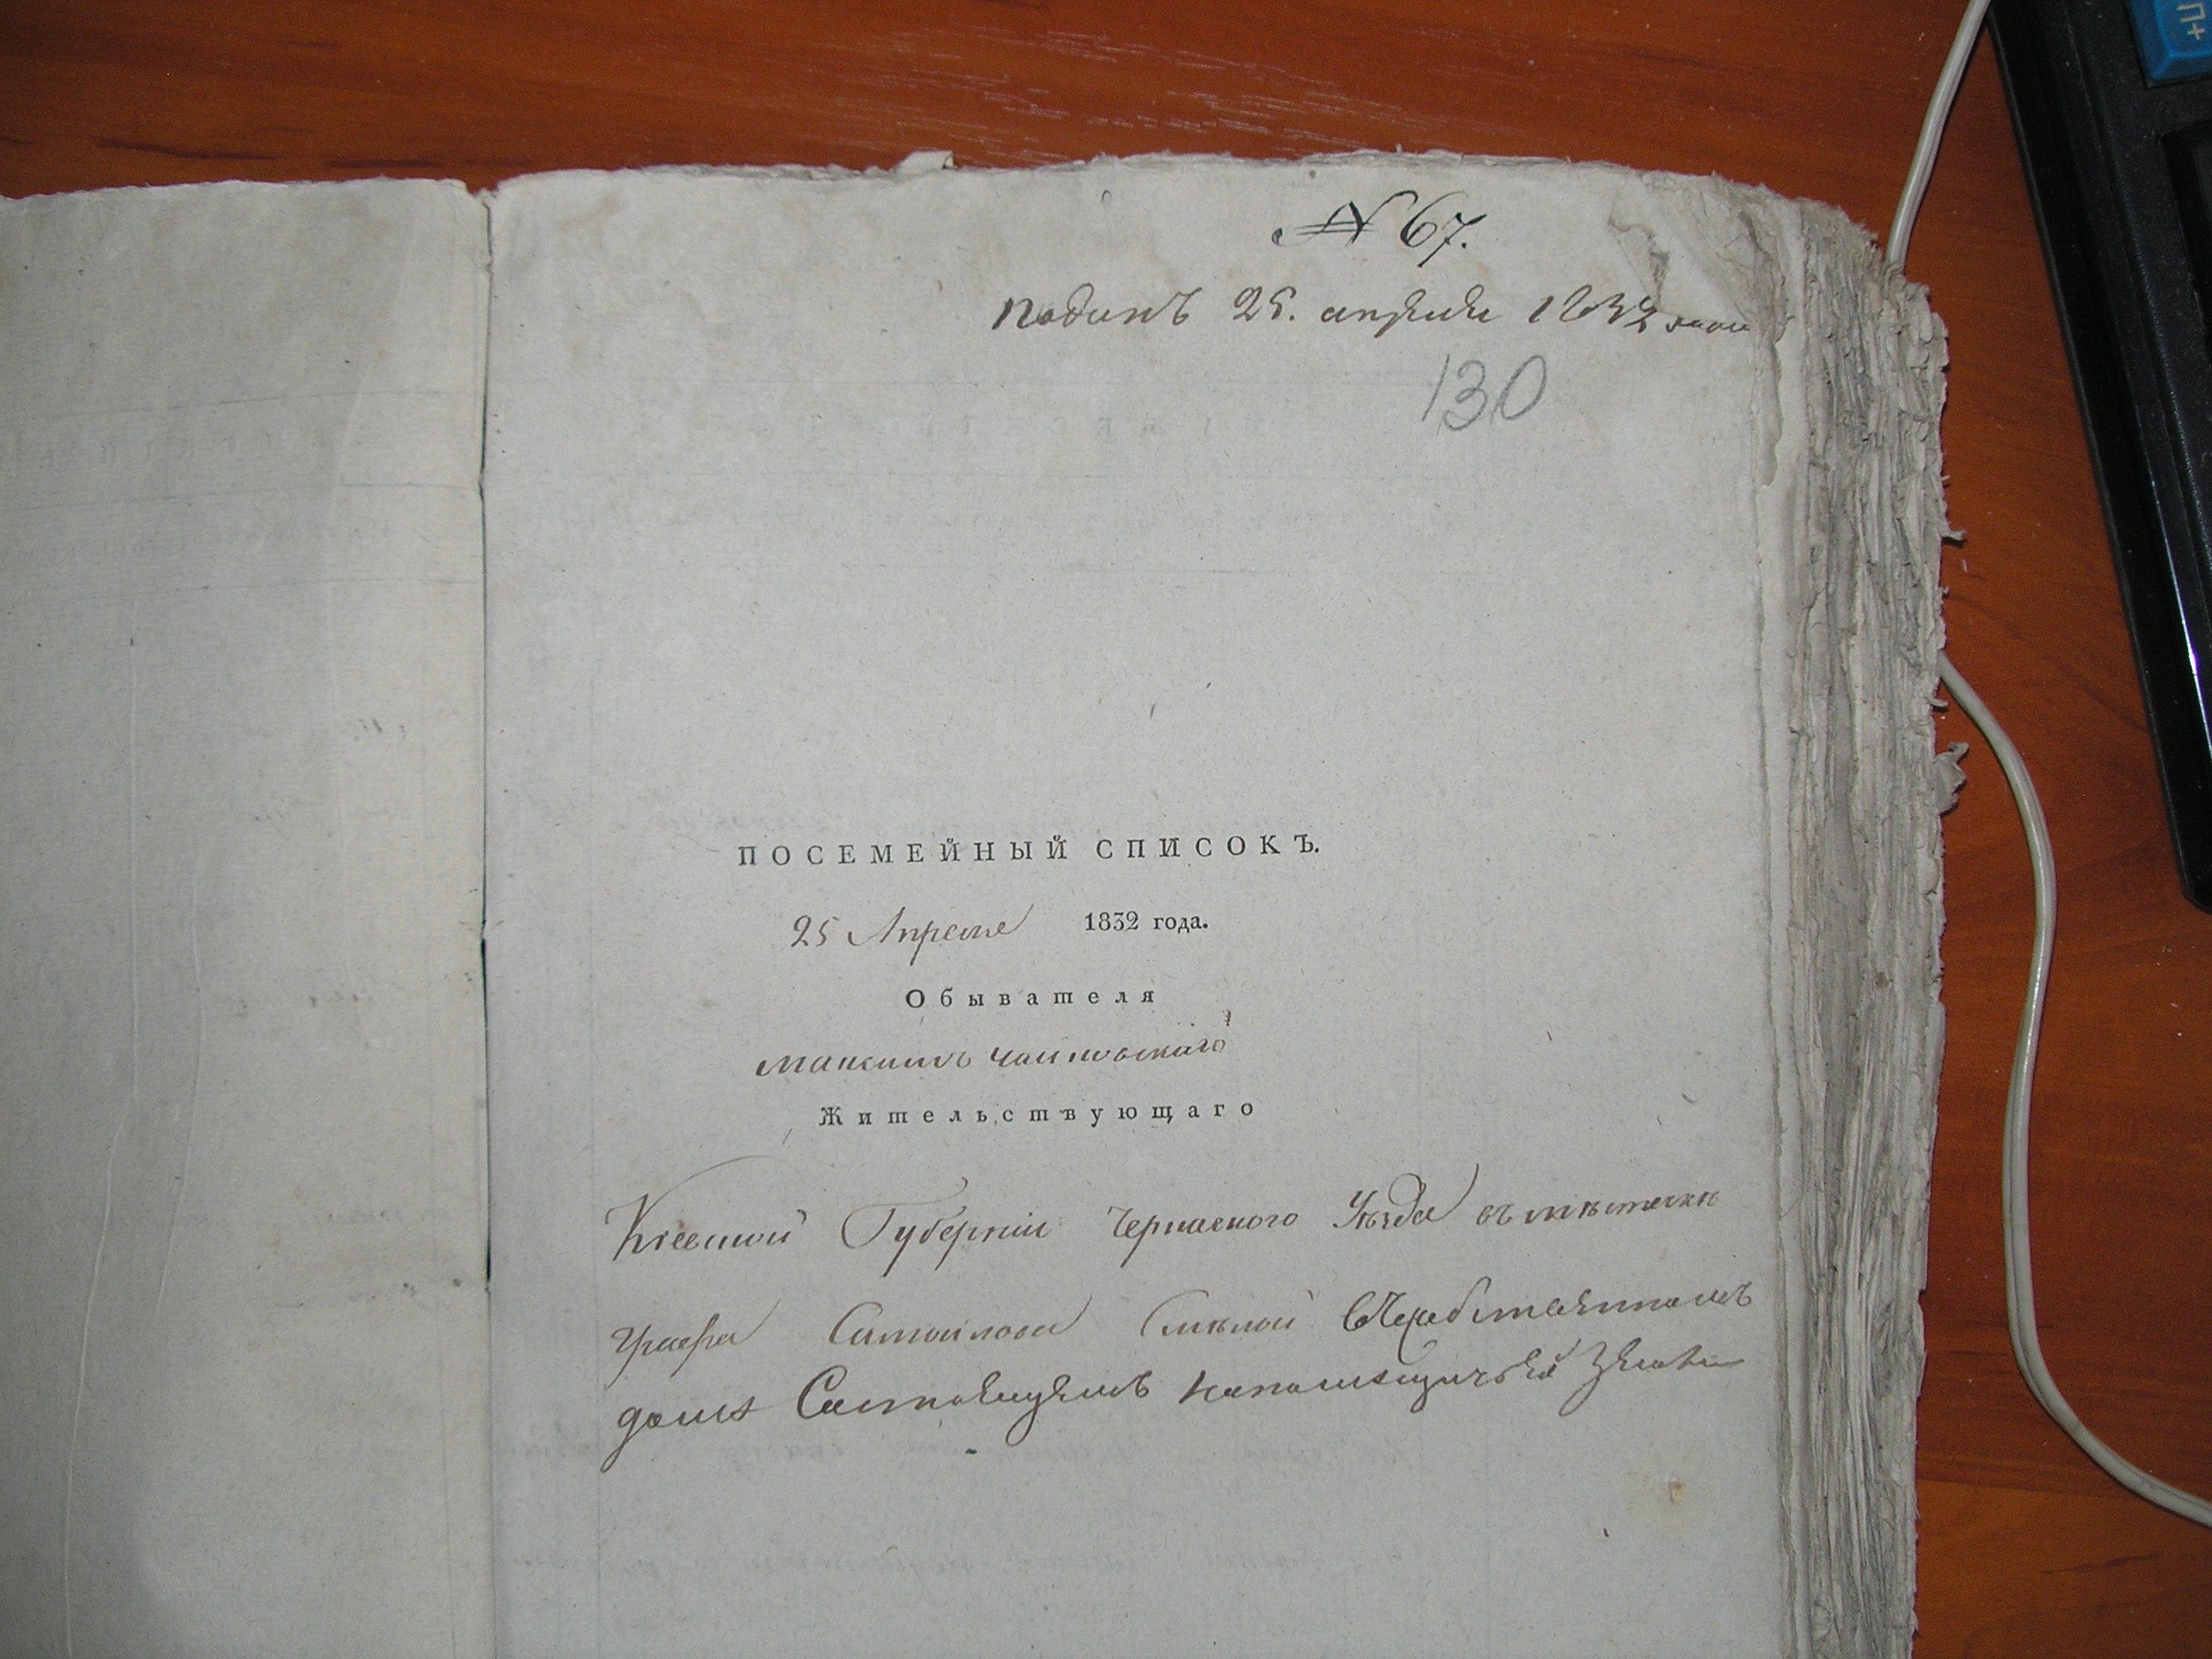 № 67.
Поданъ 25. апреля 1832 года
130
ПОСЕМЕЙНЫЙ СПИСОКЪ.
25 Апреля 1832 года.
Обывателя
Максима Чайковскаго
Жительствующаго
Кіевской Губерніи Черкаского Уѣзда въ мѣстечкѣ
графа Самойлова Смѣлой въ собственномъ
доме Состоящемъ на помещичьей Земли
П+